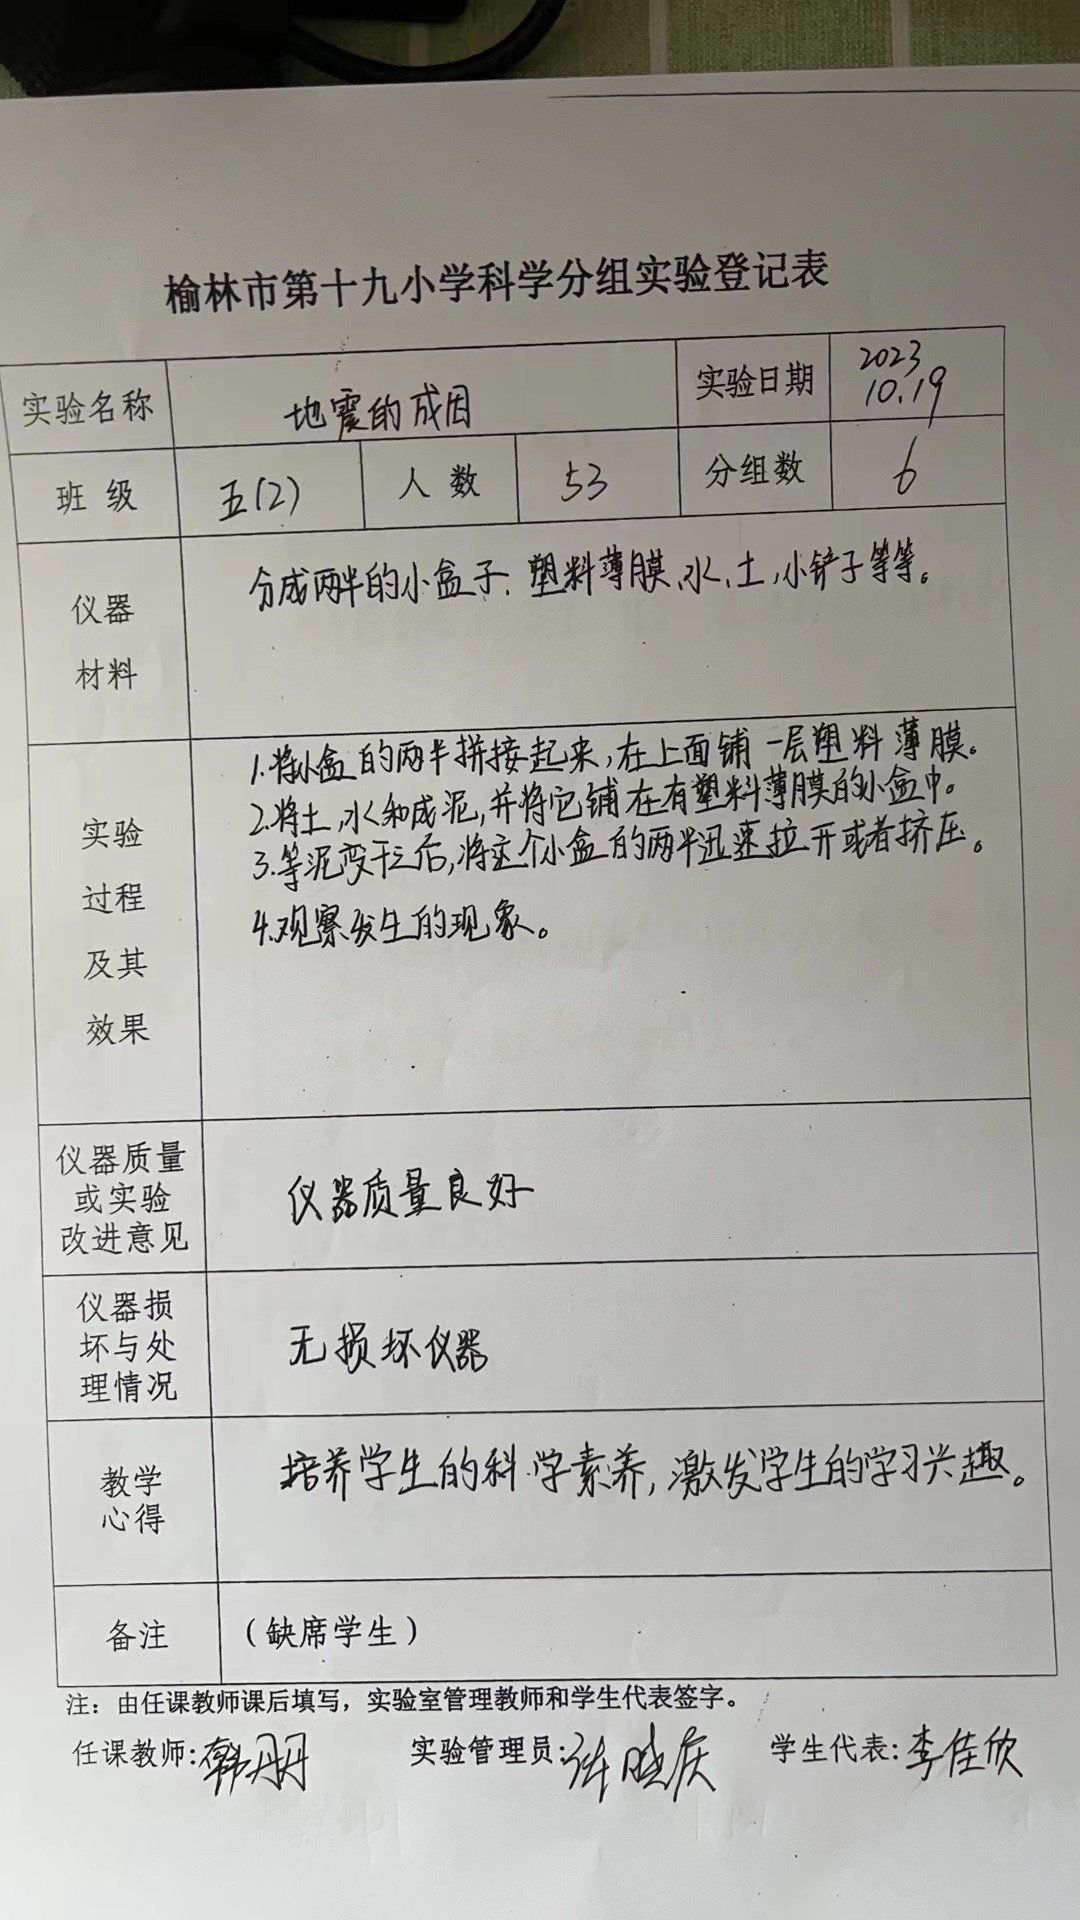 榆林市第十九小学科学分组实验登记表
实验名称 地震的成因 实验日期 2023 10.19
班级 五(2) 人数 53 分组数 6
仪器材料 分成两半的小盒子、塑料薄膜、水、土,小铲子等等。
实验过程及其效果
1.将小盒的两半拼接起来,在上面铺一层塑料薄膜。
2.将土,水和成泥,并将它铺在有塑料薄膜的小盒中。
3.等泥变干之后,将这个小盒的两半迅速拉开或者挤压。
4.观察发生的现象。
仪器质量或实验改进意见 仪器质量良好
仪器损坏与处理情况 无损坏仪器
教学心得 培养学生的科学素养,激发学生的学习兴趣。
备注 (缺席学生)
注:由任课教师课后填写,实验室管理教师和学生代表签字。
任课教师:韩丹丹 实验管理员: 晓庆 学生代表:李佳欣